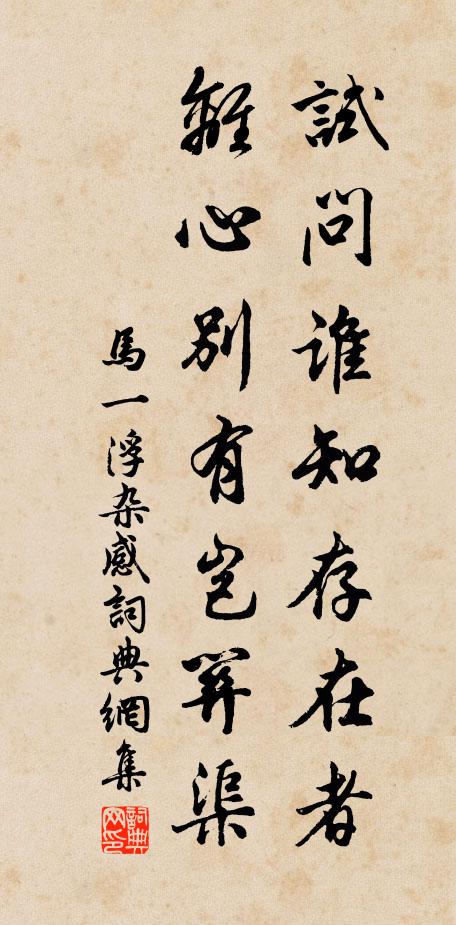 試問誰知存在者
離心別有豈渠
馬一浮杂感詞典網集
詞典網印